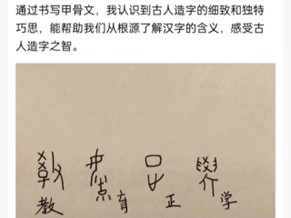 通过书写甲骨文，我认识到古人造字的细致和独特
巧思，能帮助我们从根源了解汉字的含义，感受古
人造字之智。
教 育 正 学